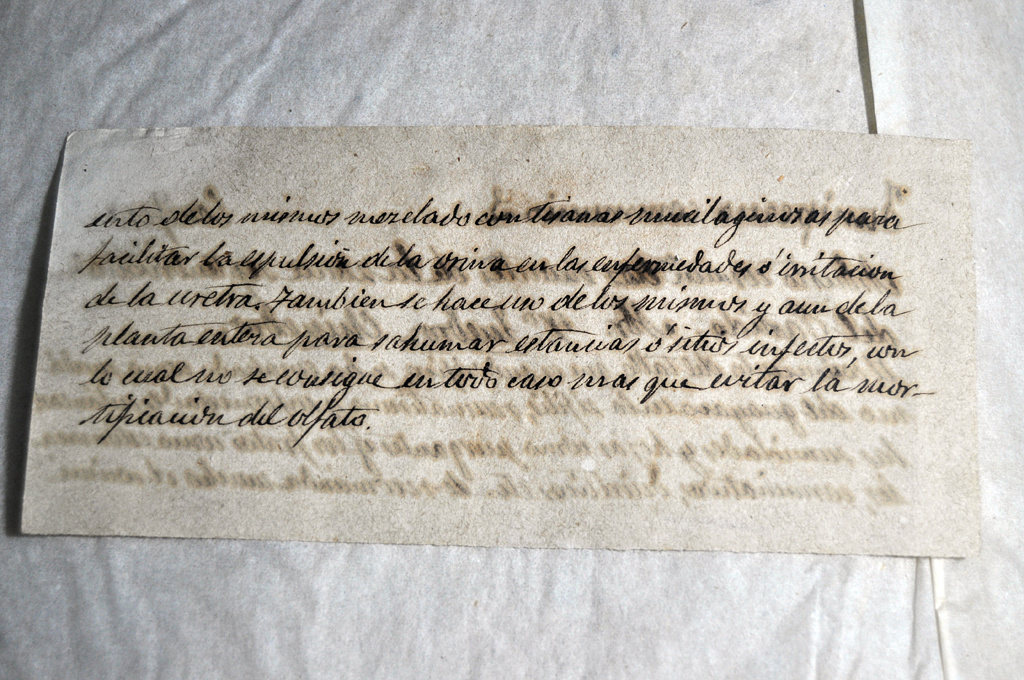 ento de los mismos mezclado con tisanas mucilaginosas para
facilitar la espulsión de la orina en las enfermedades ó irritacion
de la uretra. Tambien se hace uso de los mismos y aun de la
planta entera para sahumar estancias ó sitios infectos, con
lo cual no se consigue en todo caso mas que evitar la mor-
tificacion del olfato.